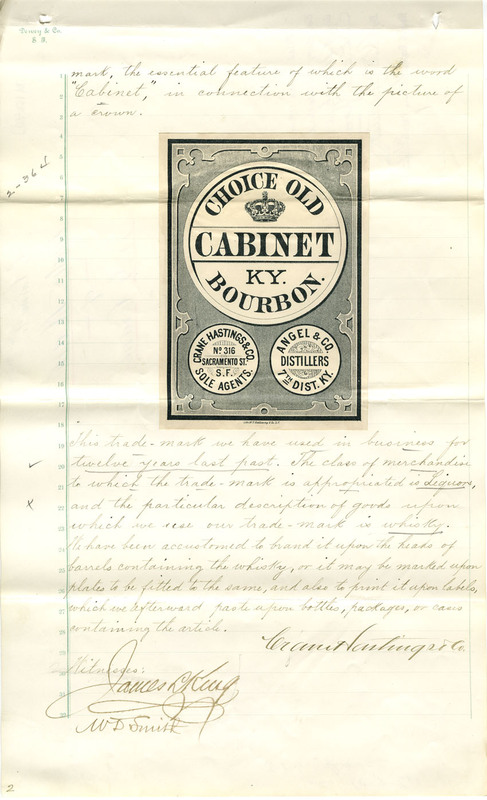 Dewey & Co.
S. F.
mark, the essential feature of which is the word
"Cabinet," in connection with the picture of
a crown.
2-364
CHOICE OLD
CABINET
KY.
BOURBON.
CRANE HASTINGS & CO.
No 316
SACRAMENTO ST.
S.F.
SOLE AGENTS.
ANGEL & CO.
DISTILLERS
7TH DIST. KY.
This trade-mark we have used in business for
twelve years last past. The class of merchandise
to which the trade-mark is appropriated is Liquors,
and the particular description of goods upon
which we use our trade-mark is whisky.
We have been accustomed to brand it upon the heads of
barrels containing the whisky, or it may be marked upon
plates to be fitted to the same, and also to print it upon labels,
which we afterward paste upon bottles, packages, or cases
containing the article.
Crane Hastings & Co.
Witnesses:
James L. King
W D Smith
2